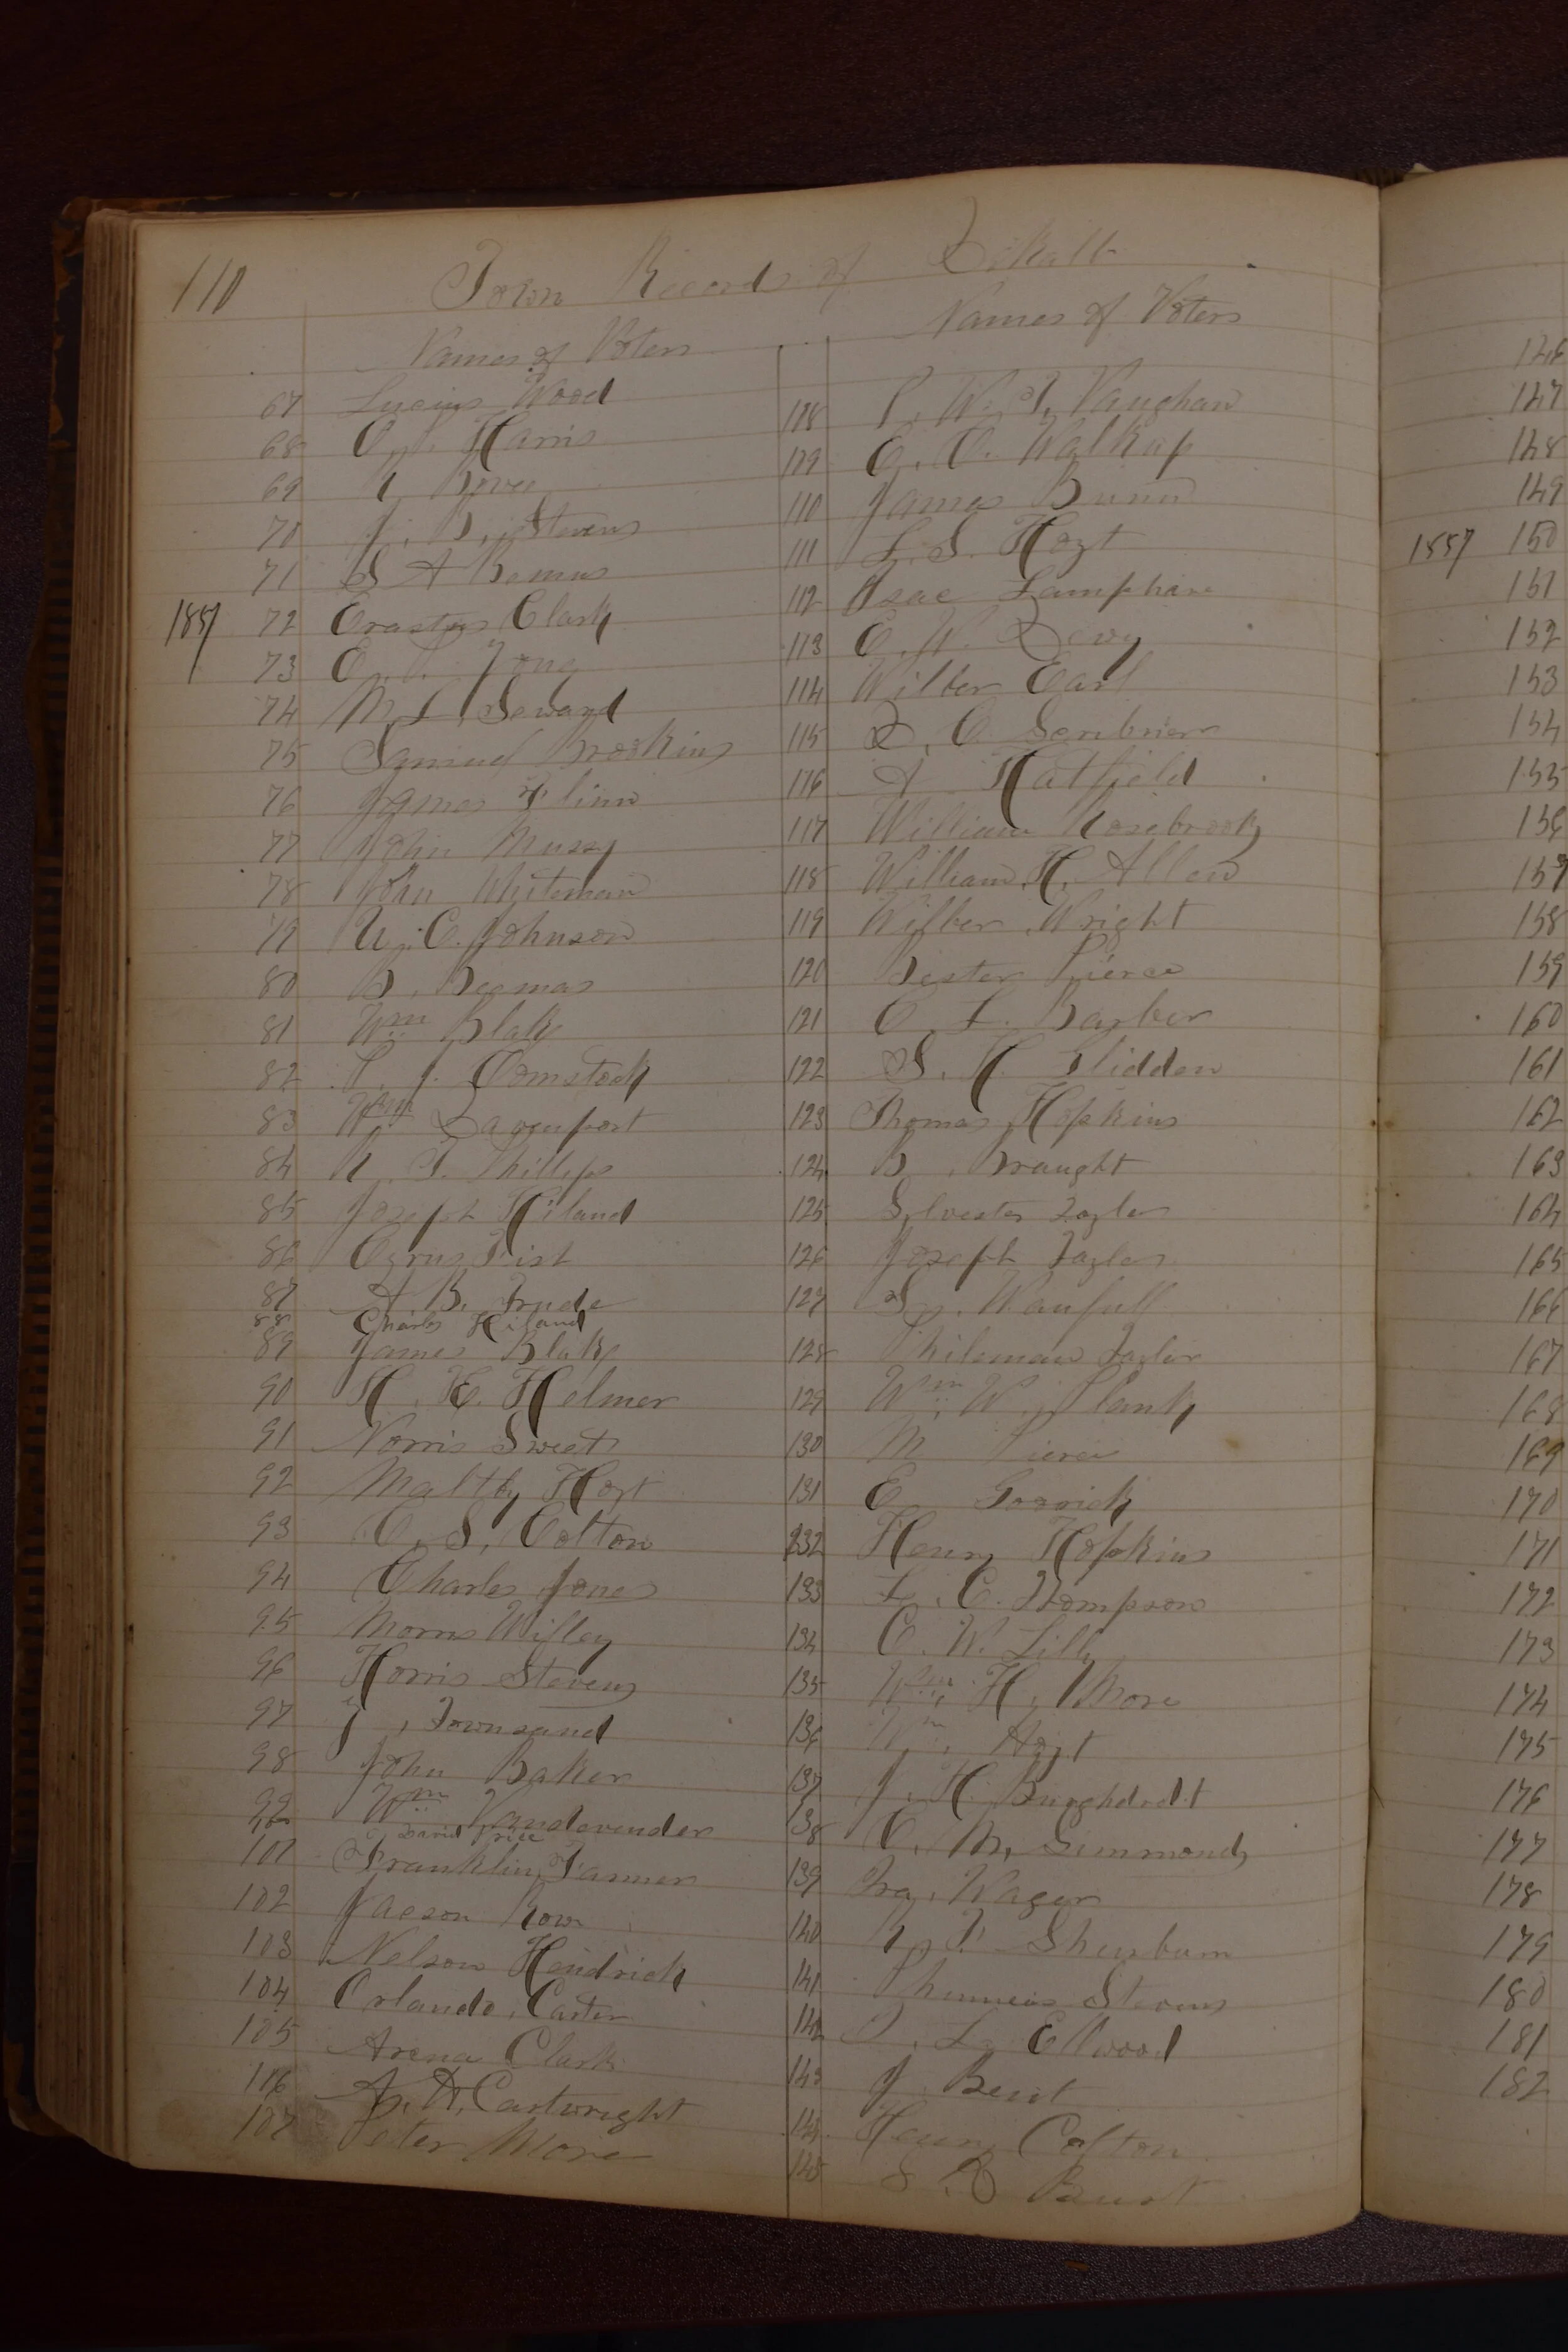 110 Town Records of DeKalb
Names of Voters
67 Lucius Wood
68 Harris
69
70 J. B. Stevens
71 S A Bemus
1857 72 Erastus Clark
73 E.
74 M. L. Seward
75 Samuel Brookins
76 James Flinn
77 John Mussy
78 John Whiteman
79 U. C. Johnson
80 B. Beemas
81 Wm Blake
82 Comstock
83 Wm Davenport
84 Phillips
85 Joseph Hiland
86 Cyrus Fisk
87 A B.
88 Charles Hiland
89 James Blake
90 H. H. Helmer
91 Norris Sweet
92 Maltby Hoyt
93 C. S. Colton
94 Charles Jones
95 Morris Wifley
96 Horris Stevens
97 J, Townsand
98 John Baker
99 Wm Vandevender
David Price
101 Franklin Farmer
102 Jacson Row
103 Nelson Hendrick
104 Orlando Carter
105 Arena Clark
106 A. H. Cartwright
107 Peter More
Names of Voters
118 P. W. T. Vaughan
119 E. O. Walkup
110 James Bunn
111 L. S. Hoyt
112 Isac Lamphare
113 E. W. Dewy
114 Wilber Earl
115 D. C. Scribner
116 A Hatfield
117 William Rosebrook
118 William H. Allen
119 Wilber Wright
120 Pierce
121 C. L. Barber
122 S. H. Glidden
123 Thomas Hopkins
124 B Braught
125 Sylvester Taylor
126 Joseph Taylor
127
128 Philemon Taylor
129 Wm W. Plank
130 M Pierce
131 E Goorick
132 Henry Hopkins
133 L. C. Thompson
134 C. W. Lilly
135 Wm H. More
136 Wm Hoyt
137 J. H. Burghardt
138 C. M. Simmonds
139 Ira Wager
140 Shurburn
141 Phinneas Stevens
142 L. Ellwood
143 J. Bent
144 Henry Colton
145 Bent
146
147
148
149
1857 150
151
152
153
154
155
156
157
158
159
160
161
162
163
164
165
166
167
168
169
170
171
172
173
174
175
176
177
178
179
180
181
182